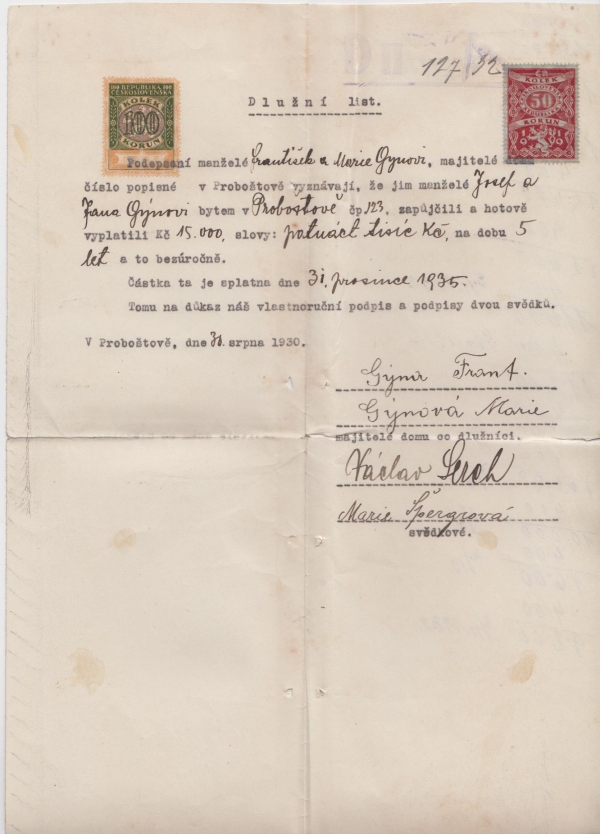 127/32
REPUBLIKA
ČESKOSLOVENSKÁ
KOLEK
100
KORUN
ČS
KOLEK
50
KORUN
Dlužní list.
Podepsaní manželé František a Marie Gynovi, majitelé domu
číslo popisné v Proboštově vyznávají, že jim manželé Josef a
Jana Gýnovi bytem v Proboštově čp 123, zapůjčili a hotově
vyplatili Kč 15.000, slovy: patnáct tisíc Kč, na dobu 5
let a to bezúročně.
Částka ta je splatna dne 31. prosince 1935.
Tomu na důkaz náš vlastnoruční podpis a podpisy dvou svědků.
V Proboštově, dne 30. srpna 1930.
Gýnır Frant.
Gýnová Marie
majitelé domu co dlužníci.
Václav Lerch
Marie Špergrová
svědkové.